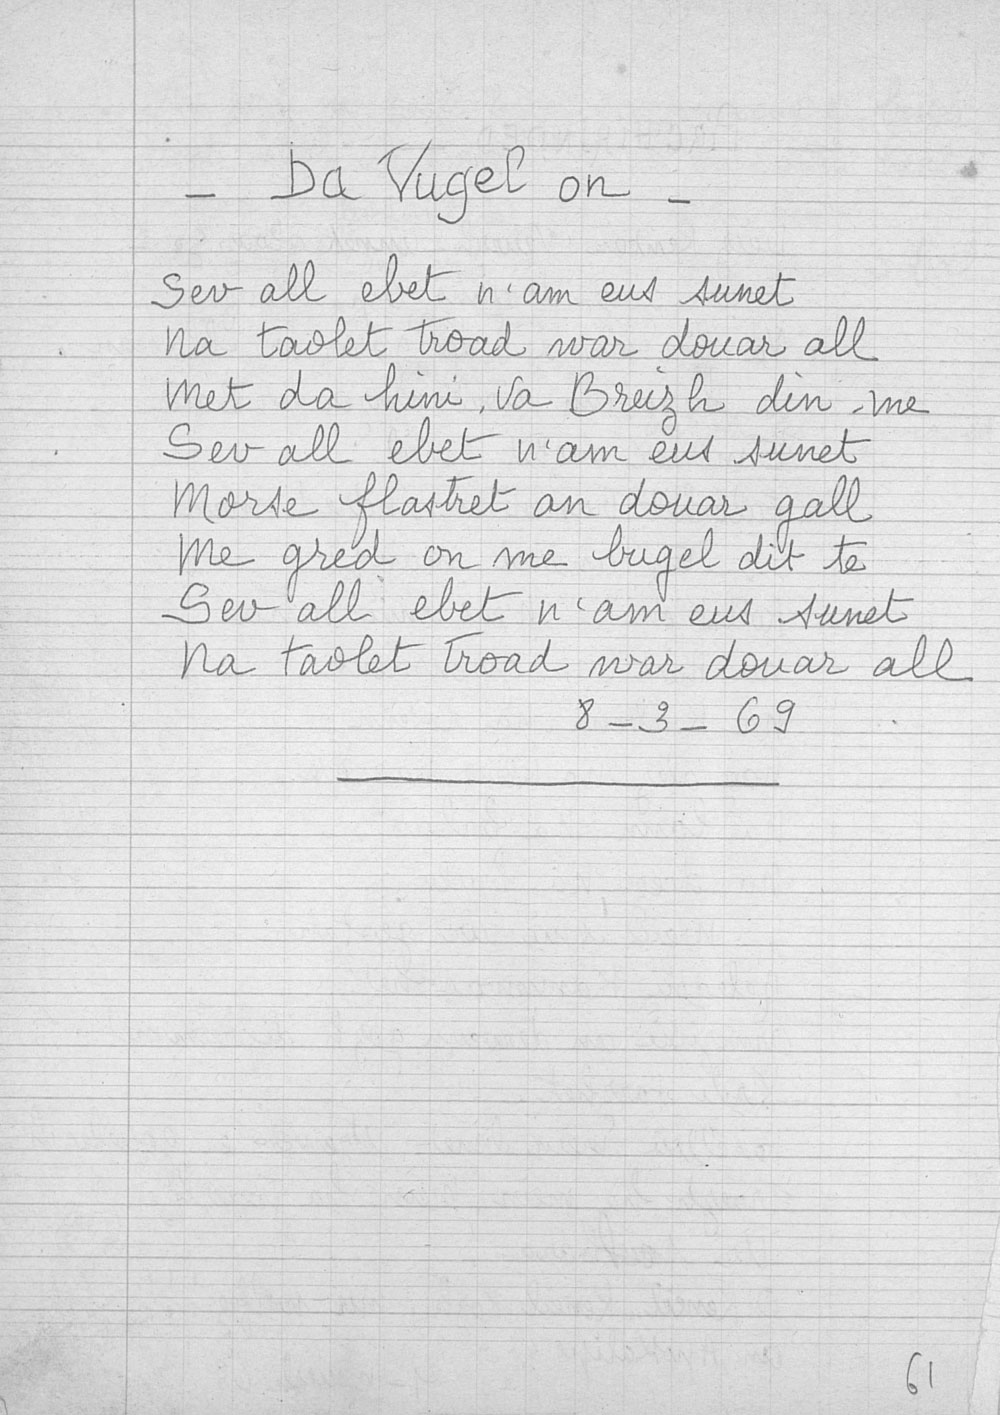 - Da Vugel on -
Sev all ebet n'am eus sunet
Na taolet troad war douar all
Met da hini, va Breizh din-me
Sev all ebet n'am eus sunet
Morse flastret an douar gall
Me gred on me bugel dit te
Sev all ebet n'am eus sunet
Na taolet troad war douar all
8-3-69
61